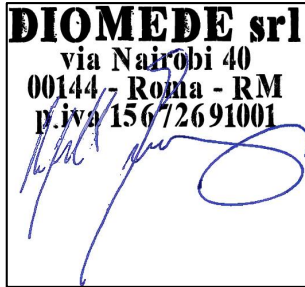 DIOMEDE srl
via Nairobi 40
00144 - Roma - RM
p.iva 15672691001